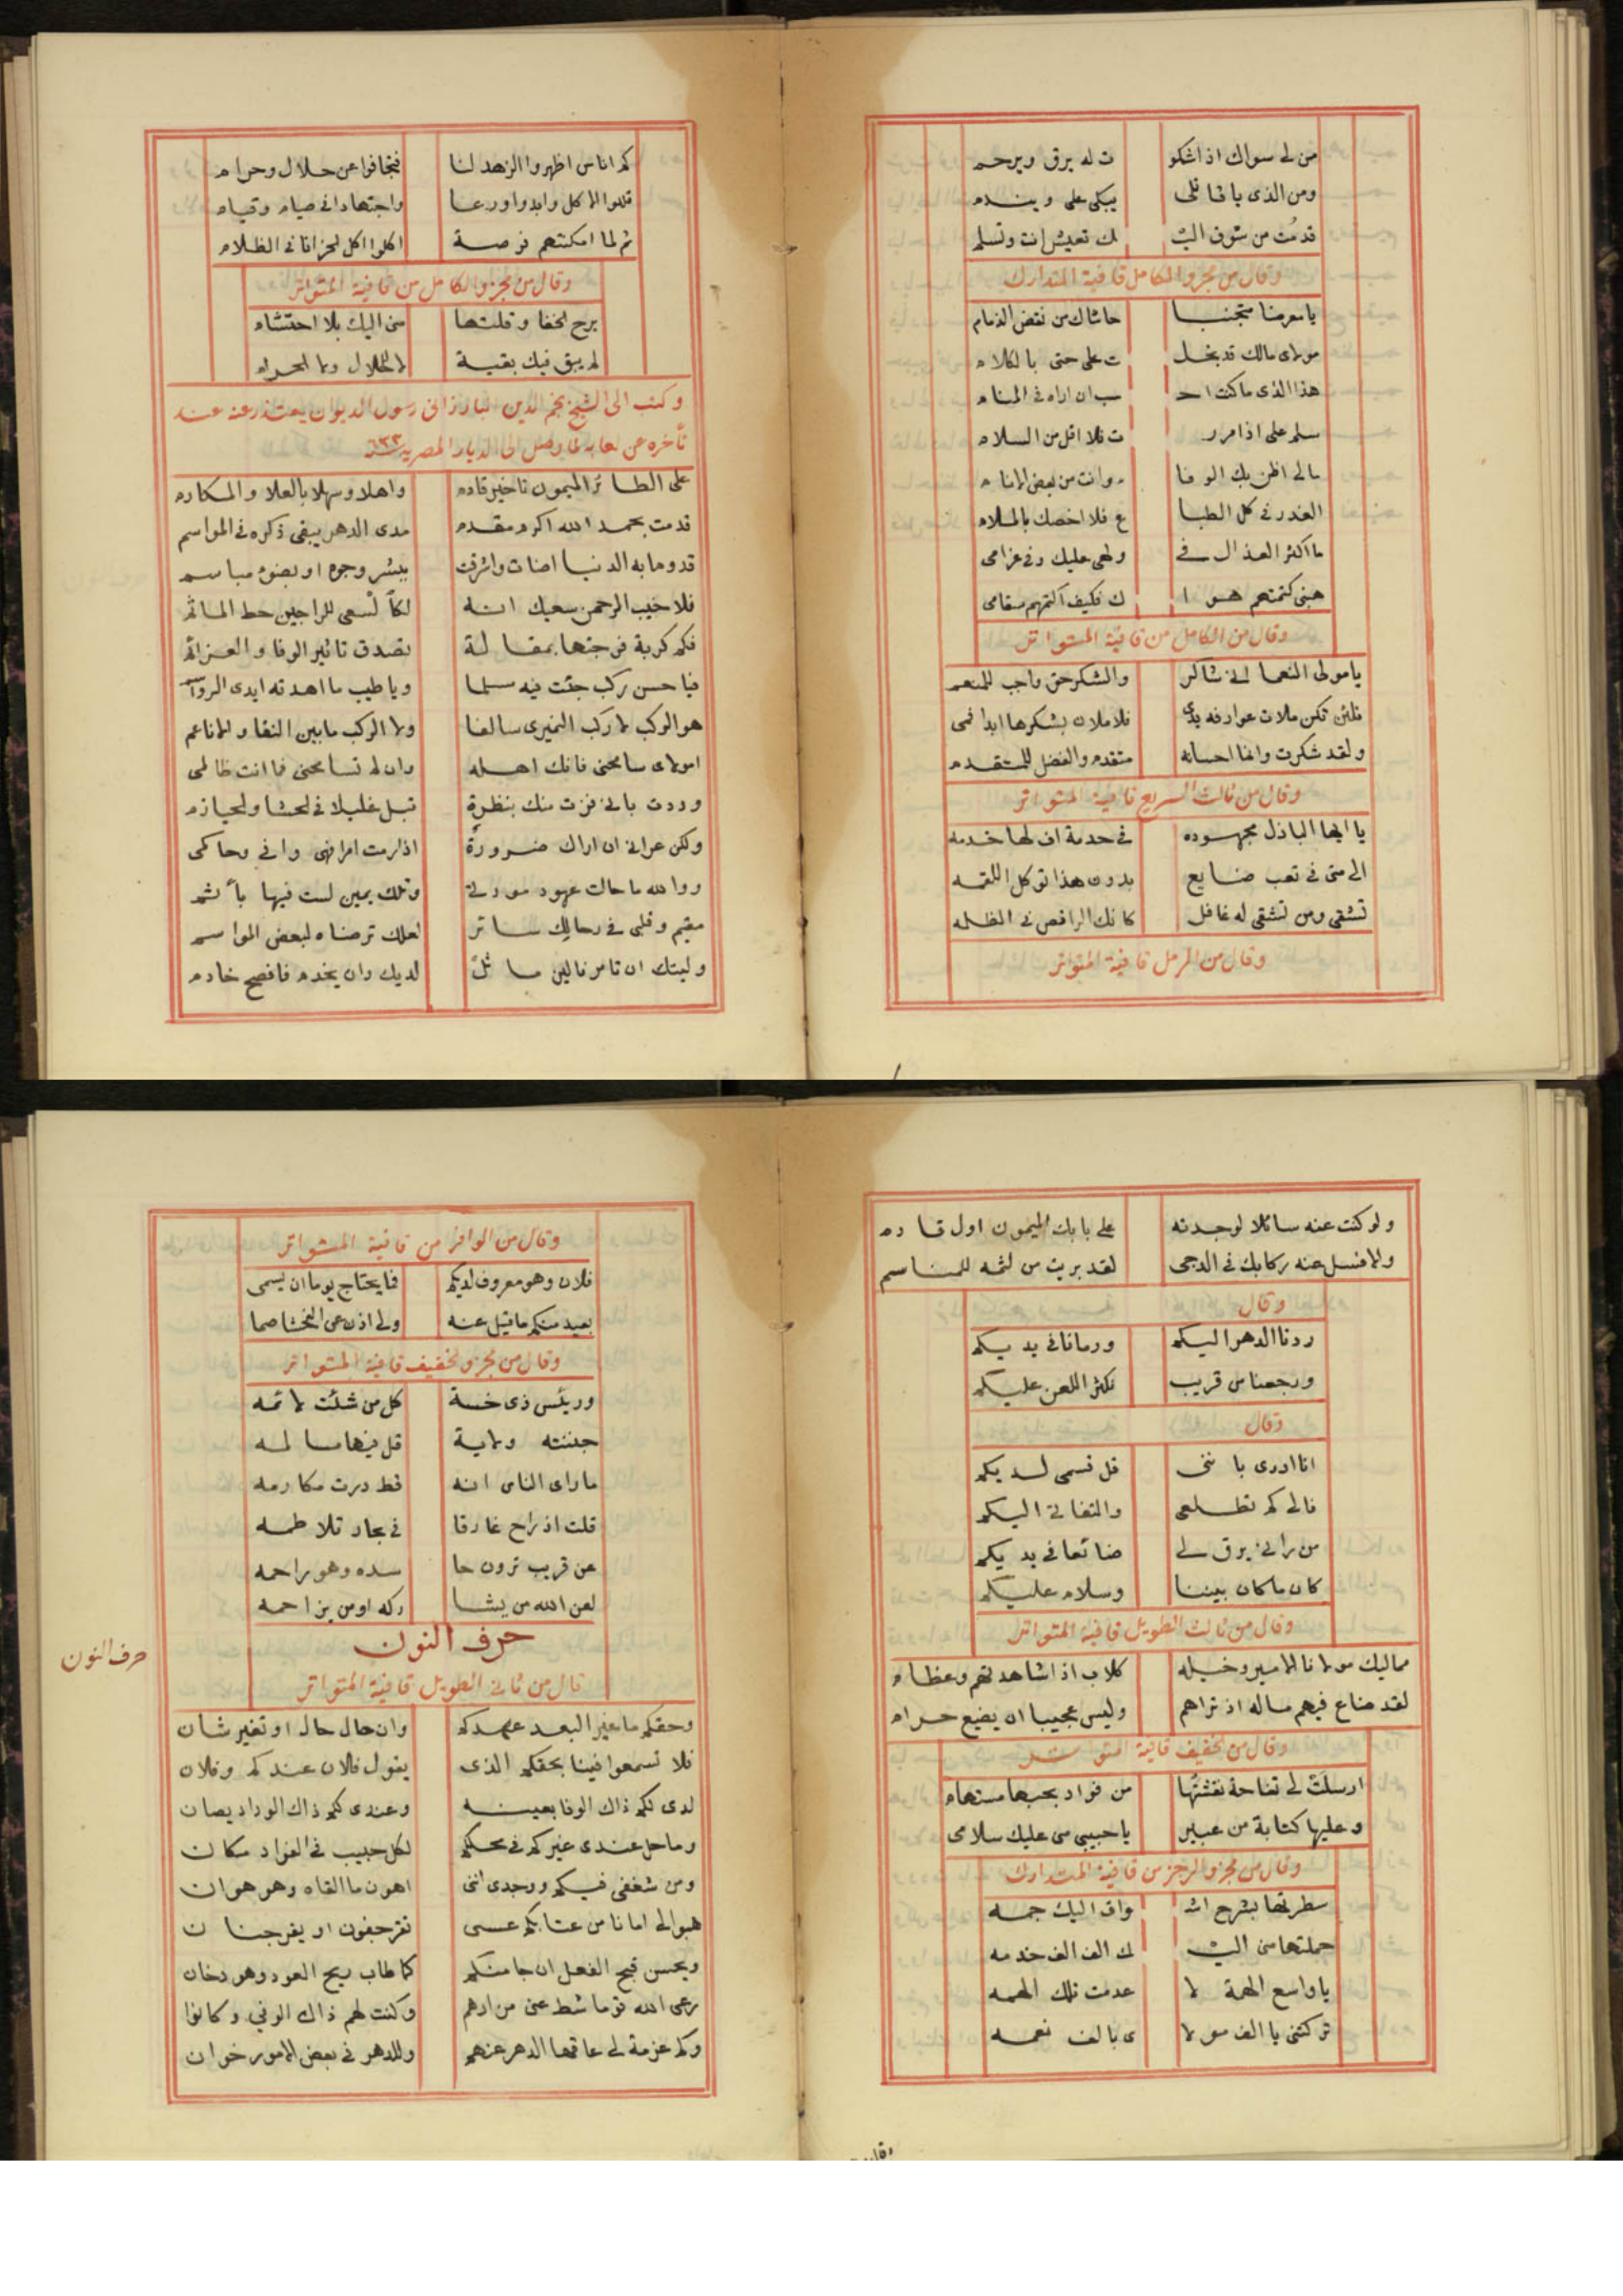 من لى سواك اذ اشكو ت له يرق ويرحم
ومن الذى يا قاتلى يبكى على ويندم
قد مُت من شوق اليـ ـك تعيش انت وتسلم
وقال من مجزو الكامل قافية المتدارك
يا معرضا متجنبا حاشاك من نقض الذمام
مولاى مالك قد بخلـ ـت على حتى بالكلام
هذا الذى ما كنت احـ ـسب ان اراه فى المنام
سلم على اذا مرر ت فلا اقل من السلام
مالى اظن بك الوفا ء وانت من بعض الانام
الغدر فى كل الطبا ع فلا اخصك بالملام
ما اكثر العذال فى ولهى عليك وفى غرامى
هبنى كتمتهم هوا ك فكيف اكتمهم سقامى
وقال من الكامل من قافية المتواتر
يا مولى النعما انى شاكر والشكر حق واجب للمنعم
فلئن تكن ملات عوارفه يدى فلاملان بشكرها ابدا فمى
ولقد شكرت وانما احسانه متقدم والفضل للمتقدم
وقال من ثالث السريع قافية المتواتر
يا ايها الباذل مجهوده فى خدمة اف لها خدمه
الى متى فى تعب ضايع بدون هذا توكل اللقمه
تشقى ومن تشقى له غافل كانك الراقص فى الظلمه
وقال من الرمل قافية المتواتر
كم اناس اظهروا الزهد لنا فتجافوا عن حلال وحرام
قللوا الاكل وابدوا ورعا واجتهادا فى صيام وقيام
ثم لما امكنتهم فرصة اكلوا اكل الحزانا فى الظلام
وقال من مجزو الكامل من قافية المتواتر
برح الخفا وقلتها منى اليك بلا احتشام
لم يبق فيك بقية لا للحلال ولا الحرام
وكتب الى الشيخ نجم الدين البارزانى رسول الديوان يعتذر عنه عند
تأخره عن لقايه لما وصل الى الديار المصريه ٦٣٣
على الطائر الميمون يا خير قادم واهلا وسهلا بالعلا والمكارم
قدمت بحمد الله اكرم مقدم مدى الدهر يبقى ذكره فى المواسم
قدوما به الدنيا اضات واشرقت ببشر وجوه او بضوء مباسم
فلا خيب الرحمن سعيك انه لكا لسعى للراجين حط الماثم
فكم كربة فرجتها بمقالة بصدق تاثير الوفا والعزائم
فيا حسن ركب جئت فيه مسلما ويا طيب ما اهدته ايدى الرواسم
هو الركب لا ركب النميرى سالفا ولا الركب ما بين النقا والاناعم
امولاى سامحنى فانك اهله وان لم تسامحنى فما انت ظالمى
وددت بانى فزت منك بنظرة تبل غليلا فى الحشا والحيازم
ولكن عرانى ان اراك ضرورة اذا رمت امرا فهى وانى وحاكمى
ووالله ما حالت عهود مودتى وتلك يمين لست فيها بآثم
مقيم وقلبى فى رحالك سائر لعلك ترضاه لبعض المواسم
وليتك ان تامر فالفى ماثلٌ لديك وان يخدم فافصح خادم
ولو كنت عنه سائلا لوجدته على بابك الميمون اول قادم
والا فسل عنه ركابك فى الدجى لقد بريت من لثمه للمناسم
وقال
ردنا الدهر اليكم ورمانا فى يديكم
ورجعنا من قريب نكثر اللعن عليكم
وقال
انا ادرى باننى قل قسمى لديكم
فالى كم تطلعى والتفاتى اليكم
من رانى يرق لى ضائعا فى يديكم
كان ما كان بيننا وسلام عليكم
وقال من ثالث الطويل قافية المتواتر
مماليك مولانا الامير وخيله كلاب اذا شاهدتهم وعظام
لقد ضاع فيهم ماله اذ تراهم وليس عجيبا ان يضيع حرام
وقال من الخفيف قافية المتواتر
ارسلَت لى تفاحة نقشتُها من فواد بحبها مستهام
وعليها كتابة من عبير يا حبيبى منى عليك سلامى
وقال من مجزو الرجز من قافية المتدارك
سطرتها بشرح اشـ ـواق اليك جمه
حملتها منى اليـ ـك الف الف خدمه
يا واسع الهمة لا عدمت تلك الهمه
تركتنى يا الف مولا ى بالف نعمه
وقال من الوافر من قافية المتواتر
فلان وهو معروف لديكم فما يحتاج يوما ان يسمى
بعيد منكم ما قيل عنه ولى اذن عن الفحشا صما
وقال من مجزو الخفيف قافية المتواتر
وريئس ذى خسة كل من شئت لائمه
جننته ولاية قل فيها مسالمه
ما راى الناس انه قط درت مكارمه
قلت اذ راح غارقا فى بحار تلاطمه
عن قريب ترون حا سده وهو راحمه
لعن الله من يشا ركه او من يزاحمه
حرف النون
حرف النون
قال من ثانى الطويل قافية المتواتر
وحقكم ما غير البعد عهدكم وان حال حال او تغير شان
فلا تسمعوا فينا بحقكم الذى يقول فلان عندكم وفلان
لدى لكم ذاك الوفا بعينه وعندى لكم ذاك الوداد يصان
وما حل عندى غيركم فى محلكم لكل حبيب فى الفواد مكان
ومن شغفى فيكم ووجدى اننى اهون ما القاه وهو هوان
هبوا لى امانا من عتابكم عسى تقر جفون او يقر جنان
ويحسن قبح الفعل ان جا منكم كما طاب ريح العود وهو دخان
رعى الله قوما شط عنى مزارهم وكنت لهم ذاك الوفي وكانوا
وكم عزمة لى عاقها الدهر عنهم وللدهر فى بعض الامور خوان